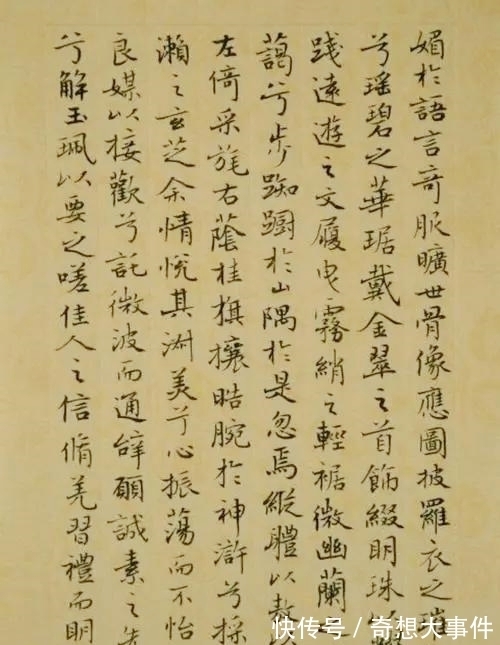 媚於語言奇服曠世骨像應圖披羅衣之璀
兮瑤碧之華琚戴金翠之首飾綴明珠以
踐遠遊之文履曳霧綃之輕裾微幽蘭之
藹兮步踟躕於山隅於是忽焉縱體以
左倚采旄右蔭桂旗攘皓腕於神滸兮採
瀨之玄芝余情悅其淑美兮心振蕩而不怡
良媒以接歡兮託微波而通辭願誠素之先
兮解玉珮以要之嗟佳人之信脩羌習禮而明
快传号／奇想大事件